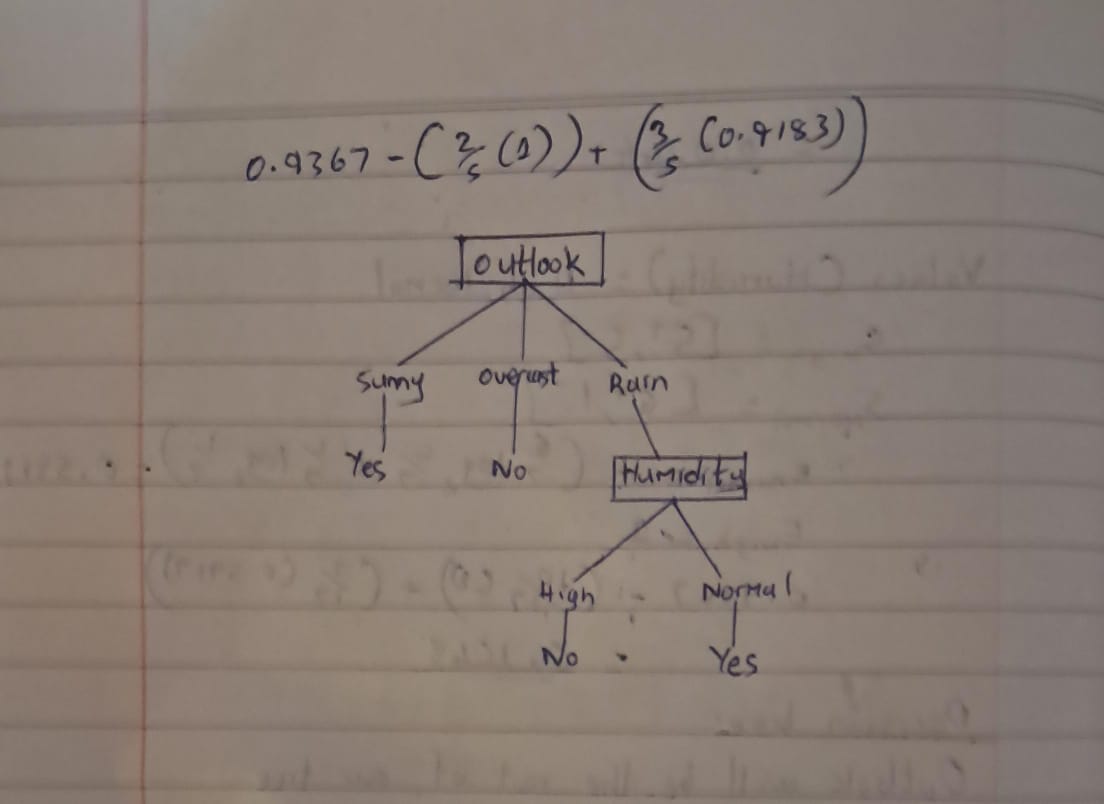 0.9367 - (2/5 (1)) + (3/5 (0.9183))
Outlook
Sunny overcast Rain
Yes No Humidity
High Normal
No Yes